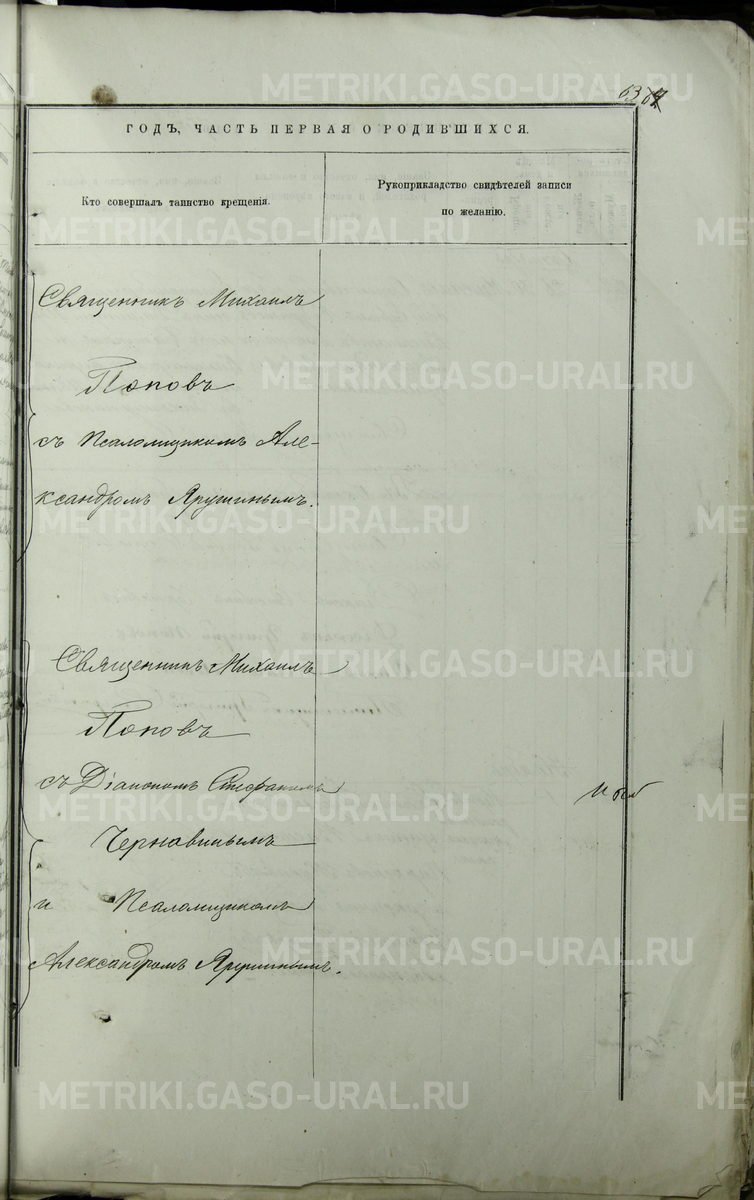 63
ГОДЪ, ЧАСТЬ ПЕРВАЯ О РОДИВШИХСЯ.
Кто совершалъ таинство крещенія.
Рукоприкладство свидѣтелей записи
по желанію.
Священникъ Михаилъ
Поповъ
съ Псаломщикомъ Але-
ксандромъ Ярушинымъ.
Священникъ Михаилъ
Поповъ
съ Діакономъ Стефаномъ
Чернавинымъ
и Псаломщикомъ
Александромъ Ярушинымъ.
METRIKI.GASO-URAL.RU